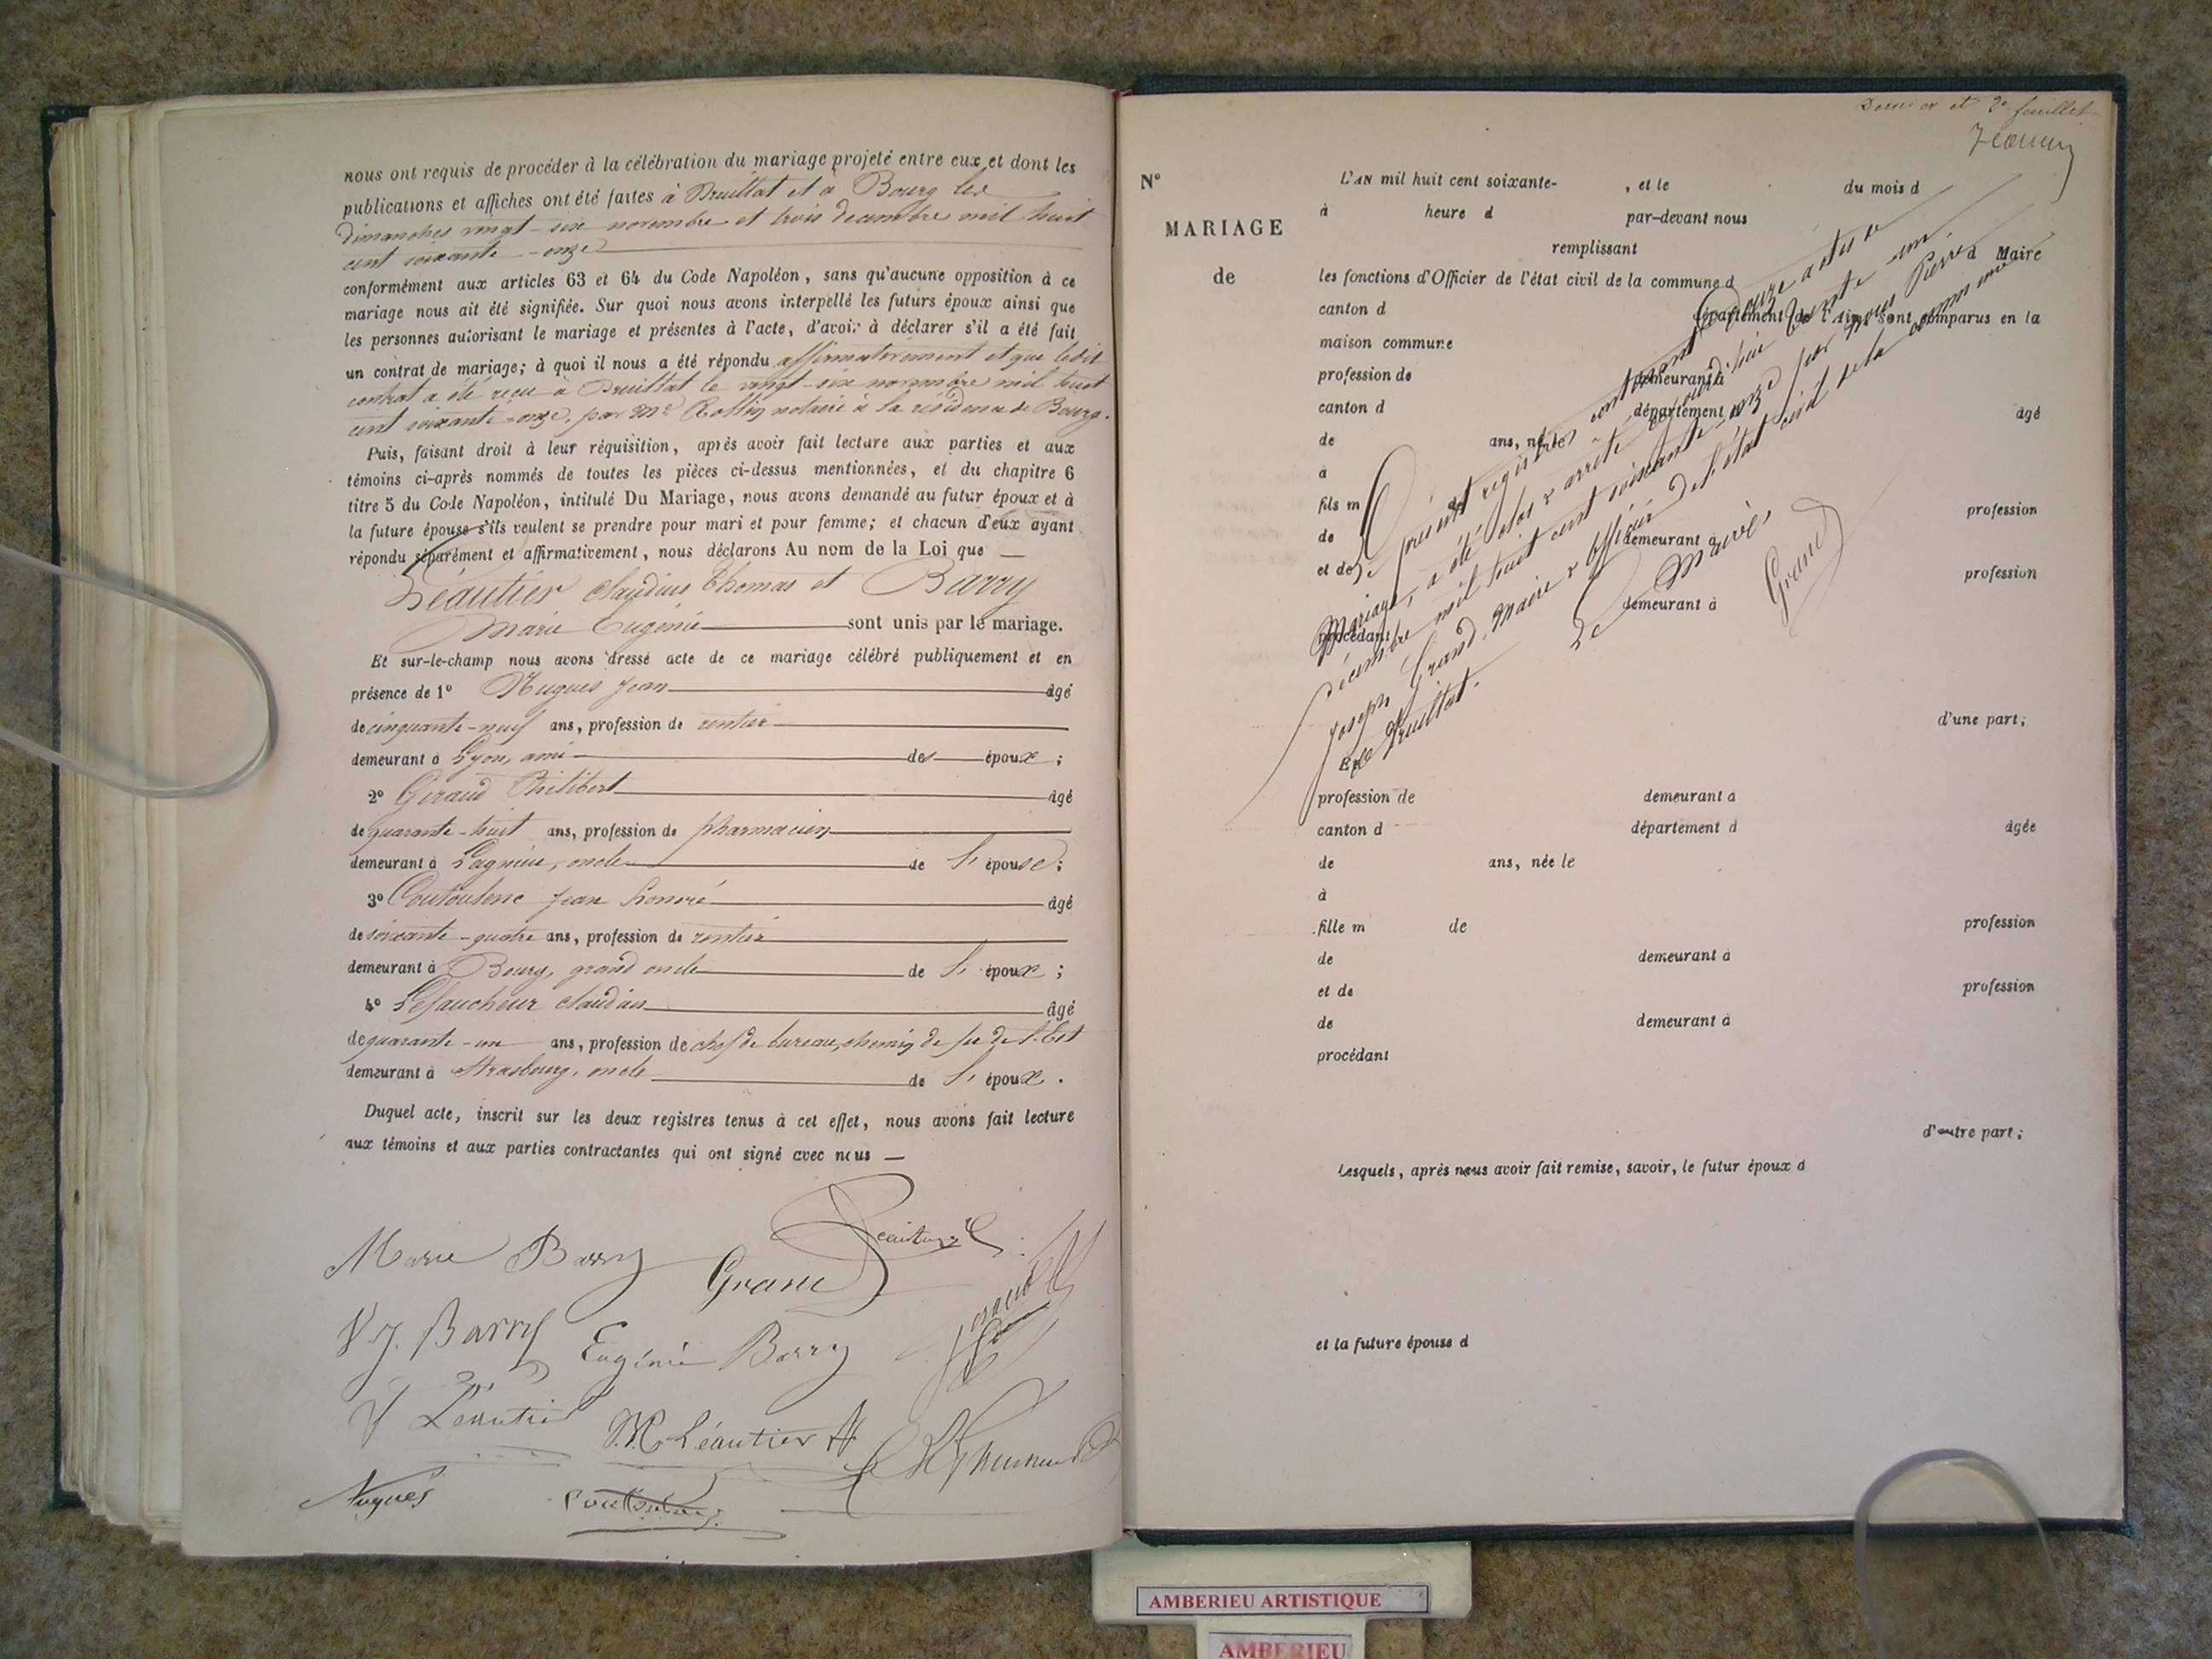 nous ont requis de procéder à la célébration du mariage projeté entre eux et dont les
publications et affiches ont été faites à Druillat et à Bourg les
dimanches vingt-six novembre et trois décembre mil huit
cent soixante-onze
conformément aux articles 63 et 64 du Code Napoléon, sans qu'aucune opposition à ce
mariage nous ait été signifiée. Sur quoi nous avons interpellé les futurs époux ainsi que
les personnes autorisant le mariage et présentes à l'acte, d'avoir à déclarer s'il a été fait
un contrat de mariage; à quoi il nous a été répondu affirmativement et que ledit
contrat a été reçu à Druillat le vingt-six novembre mil huit
cent soixante-onze, par Me notaire à la résidence de Bourg.
Puis, faisant droit à leur réquisition, après avoir fait lecture aux parties et aux
témoins ci-après nommés de toutes les pièces ci-dessus mentionnées, et du chapitre 6
titre 5 du Code Napoléon, intitulé Du Mariage, nous avons demandé au futur époux et à
la future épouse s'ils veulent se prendre pour mari et pour femme; et chacun d'eux ayant
répondu séparément et affirmativement, nous déclarons Au nom de la Loi que —
Léautier Claudius Thomas et Barry
Marie Eugénie sont unis par le mariage.
Et sur-le-champ nous avons dressé acte de ce mariage célébré publiquement et en
présence de 1° Nugues Jean âgé
de cinquante-neuf ans, profession de rentier
demeurant à Lyon, ami des époux;
2° Giraud Philibert âgé
de quarante-huit ans, profession de pharmacien
demeurant à Lagnieu, oncle de l'épouse;
3° Coutoulenc Jean honoré âgé
de soixante-quatre ans, profession de rentier
demeurant à Bourg, grand oncle de l'époux;
4° Lefaucheur Claudius âgé
de quarante-un ans, profession de chef de bureau, chemin de fer de l'Est
demeurant à Strasbourg, oncle de l'époux.
Duquel acte, inscrit sur les deux registres tenus à cet effet, nous avons fait lecture
aux témoins et aux parties contractantes qui ont signé avec nous —
Marie Barry
Léautier
Grand
V J. Barry
Eugénie Barry
Giraud
J Léautier
M Léautier
Nugues
Dernier et 2e feuillet
N°
MARIAGE
de
L'AN mil huit cent soixante- , et le du mois d
à heure d par-devant nous
remplissant
les fonctions d'Officier de l'état civil de la commune d Maire
canton d département de l'Ain, sont comparus en la
maison commune
profession de demeurant à
canton d département d âgé
de ans, né le
à
fils m de profession
de demeurant à
et de profession
demeurant à
procédant
Le présent registre contenant douze actes de
Mariage, a été clos & arrêté aujourd'hui trente-un
Décembre mil huit cent soixante-onze par nous Pierre
Joseph Grand, Maire & officier de l'état civil de la commune
de Druillat.
Le Maire,
Grand
d'une part;
Et
profession de demeurant à
canton d département d âgée
de ans, née le
à
fille m de profession
de demeurant à
et de profession
de demeurant à
procédant
d'autre part;
Lesquels, après nous avoir fait remise, savoir, le futur époux d
et la future épouse d
AMBERIEU ARTISTIQUE
AMBERIEU